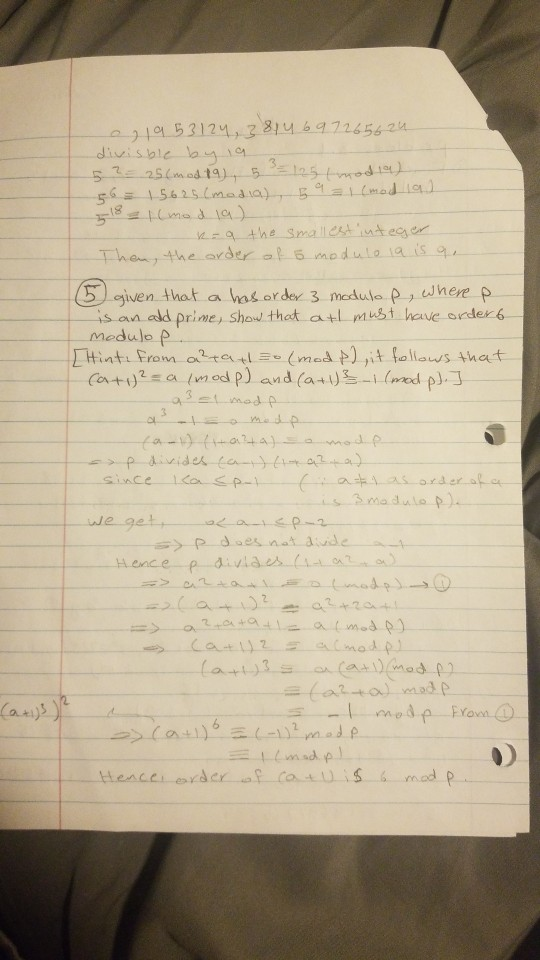 0, 1953124, 3814697265624
divisble by 19
5² ≡ 25(mod 19), 5³ ≡ 125 (mod 19)
5⁶ ≡ 15625(mod 19), 5⁹ ≡ 1 (mod 19)
5¹⁸ ≡ 1 (mod 19)
x = 9 the smallest integer
Then, the order of 5 modulo 19 is 9.
⑤ given that a has order 3 modulo p, where p
is an odd prime, show that a+1 must have order 6
modulo p.
[Hint: From a²+a+1 ≡ 0 (mod p), it follows that
(a+1)² ≡ a (mod p) and (a+1)³ ≡ -1 (mod p).]
a³ ≡ 1 mod p
a³ - 1 ≡ 0 mod p
(a-1) (1+a²+a) ≡ 0 mod p
=> p divides (a-1) (1+a²+a)
since 1<a ≤ p-1 (∵ a ≠ 1 as order of a
is 3 modulo p).
we get, 0< a-1 ≤ p-2
=> p does not divide a-1
Hence p divides (1+a²+a)
=> a²+a+1 ≡ 0 (mod p) → ①
=> (a+1)² = a²+2a+1
=> a²+a+a+1 ≡ a (mod p)
=> (a+1)² ≡ a (mod p)
(a+1)³ ≡ a(a+1)(mod p)
≡ (a²+a) mod p
≡ -1 mod p From ①
(a+1)³)²
=> (a+1)⁶ ≡ (-1)² mod p
≡ 1 (mod p)
Hence, order of (a+1) is 6 mod p.